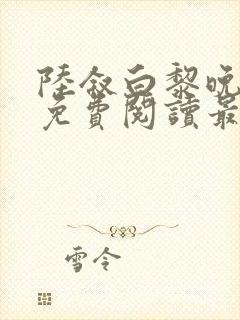 陸敘白黎晚
免費閱讀最
雪令